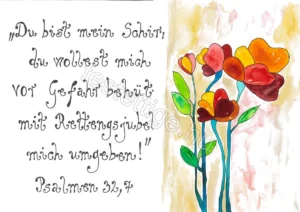 „Du bist mein Schirm,
du wollest mich
vor Gefahr behüt
mit Rettungsjubel
mich umgeben!"
Psalmen 32,7